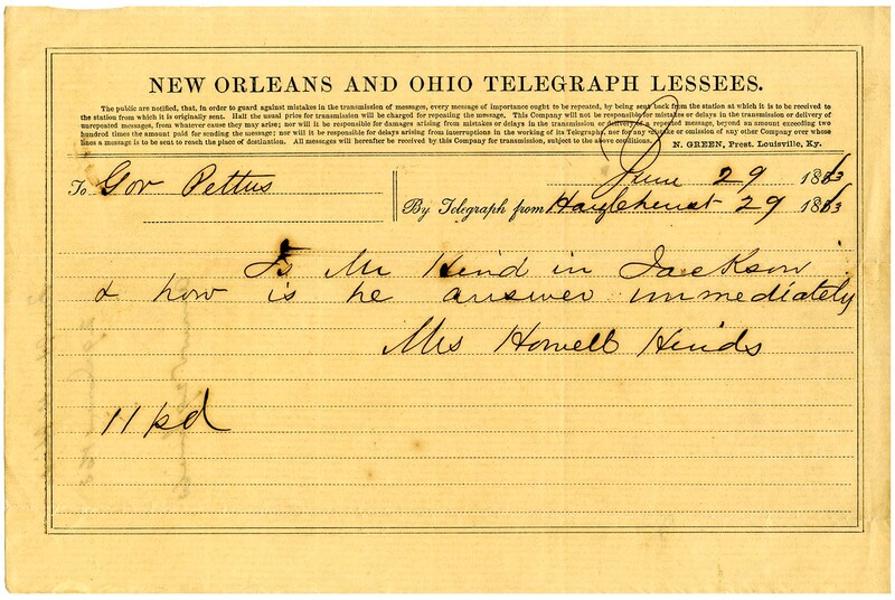 NEW ORLEANS AND OHIO TELEGRAPH LESSEES.
The public are notified, that, in order to guard against mistakes in the transmission of messages, every message of importance ought to be repeated, by being sent back from the station at which it is to be received to
the station from which it is originally sent. Half the usual price for transmission will be charged for repeating the message. This Company will not be responsible for mistakes or delays in the transmission or delivery of
unrepeated messages, from whatever cause they may arise; nor will it be responsible for damages arising from mistakes or delays in the transmission or delivery of a repeated message, beyond an amount exceeding two
hundred times the amount paid for sending the message; nor will it be responsible for delays arising from interruptions in the working of its Telegraphs, nor for any mistake or omission of any other Company over whose
lines a message is to be sent to reach the place of destination. All messages will hereafter be received by this Company for transmission, subject to the above conditions. N. GREEN, Prest. Louisville, Ky.
To Gov Pettus
June 29 1863
By Telegraph from Hazlehurst 29 1863
Is Mr Hind in Jackson
& how is he answer immediately
Mrs Howell Hinds
11 pd